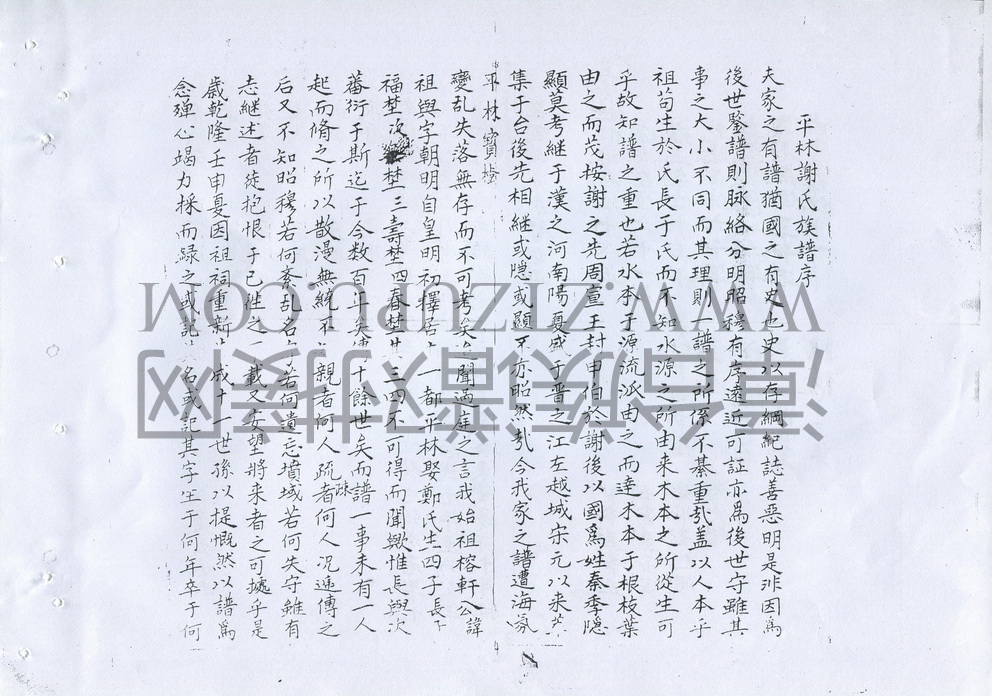 平林謝氏族譜序
夫家之有譜猶國之有史也史以存綱紀誌善惡明是非因爲
後世鑒譜則脉絡分明昭穆有序遠近可証亦爲後世守雖其
事之大小不同而其理則一譜之所係不綦重哉盖以人本乎
祖苟生於氏長于氏而不知水源之所由来木本之所從生可
乎故知譜之重也若水本于源流派由之而達木本于根枝葉
由之而茂按謝之先周宣王封申伯於謝後以國爲姓秦季隱
顯莫考継于漢之河南陽夏盛于晋之江左越城宋元以来
集于台後先相継或隠或顯不亦昭然哉今我家之譜遭海氛
平林寳樹
變乱失落無存而不可考矣聞過庭之言我始祖榕軒公諱
祖與字朝明自皇明初擇居一都平林娶鄭氏生四子長
福埜次埜三壽埜四春埜三四不可得而聞歟惟長與次
蕃衍于斯迄于今数百年矣傳十餘世矣而譜一事未有一人
起而脩之所以散漫無統不親者何人疏者何人况逓傳之
疎
后又不知昭穆若何紊乱名若何遺忘墳域若何失守雖有
志継述者徒抱恨于已徃之一載又安望將来者之可據乎是
歳乾隆壬申夏因祖祠重新成十一世孫以提慨然以譜爲
念殫心竭力採而録之或記名或記其字生于何年卒于何
WWW.ZIZUPU.COM